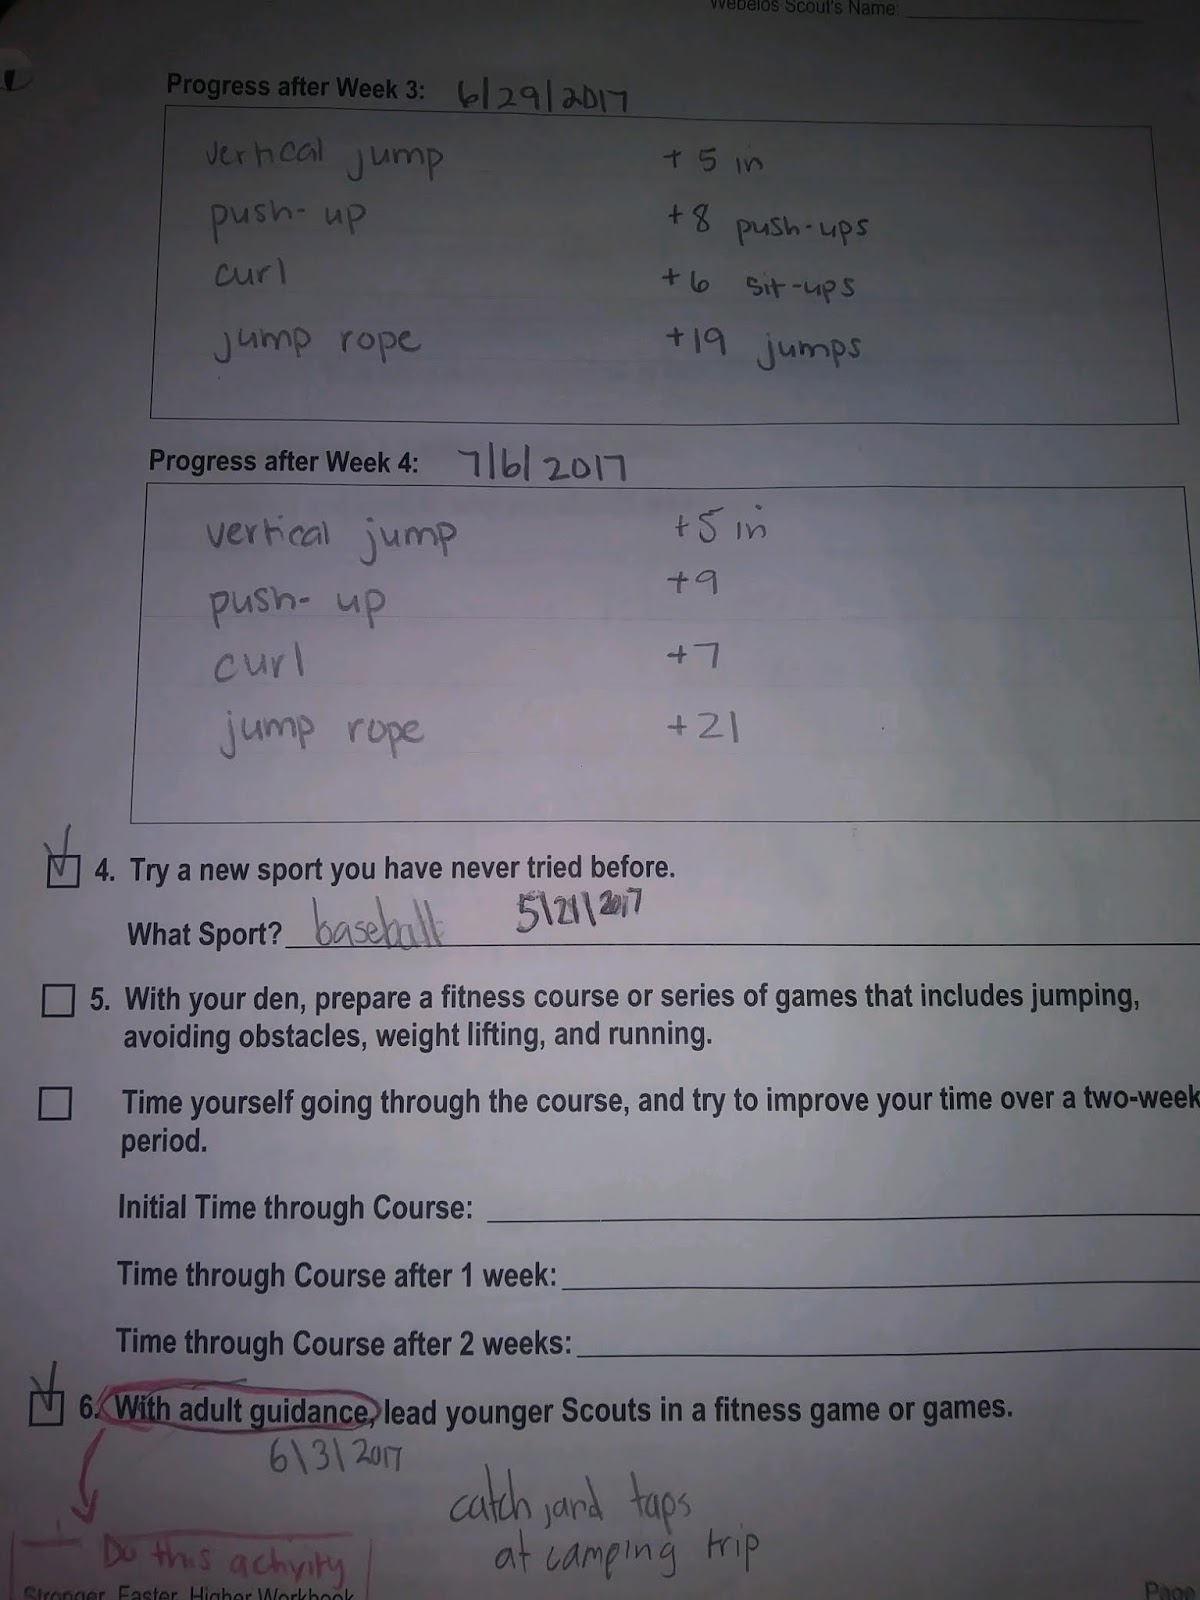 Webelos Scout's Name:
Progress after Week 3: 6/29/2017
vertical jump + 5 in
push-up +8 push-ups
curl +6 sit-ups
jump rope +19 jumps
Progress after Week 4: 7/6/2017
vertical jump +5 in
push-up +9
curl +7
jump rope +21
4. Try a new sport you have never tried before.
What Sport? baseball 5/21/2017
5. With your den, prepare a fitness course or series of games that includes jumping,
avoiding obstacles, weight lifting, and running.
Time yourself going through the course, and try to improve your time over a two-week
period.
Initial Time through Course:
Time through Course after 1 week:
Time through Course after 2 weeks:
6. With adult guidance, lead younger Scouts in a fitness game or games.
6/3/2017
catch, and taps
at camping trip
Do this activity
Stronger, Faster, Higher Workbook
Page